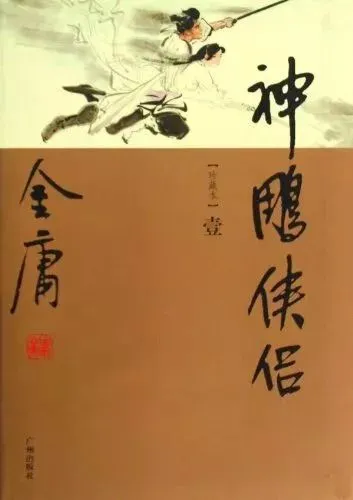 神鵰侠侣
【珍藏本】壹
金庸
广州出版社